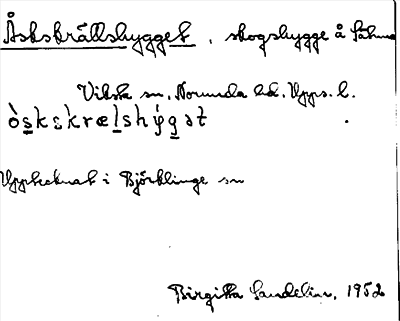 Åskskrällshygget, skogshygge å Sähma
Viksta sn. Norunda hd. Upps. l.
ò̀s̲kskrœl̲shý̀g̲ət
Upptecknat i Björklinge sn
Birgitta Sandelin, 1952